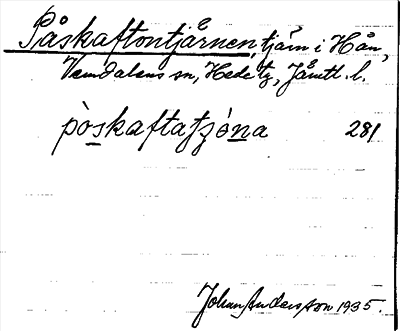 Påskaftontjärnen, tjärn i Hån,
Vemdalens sn, Hede tg, Jämtl. l.
pòskaftatjó̱na 281
Johan Andersson 1935.